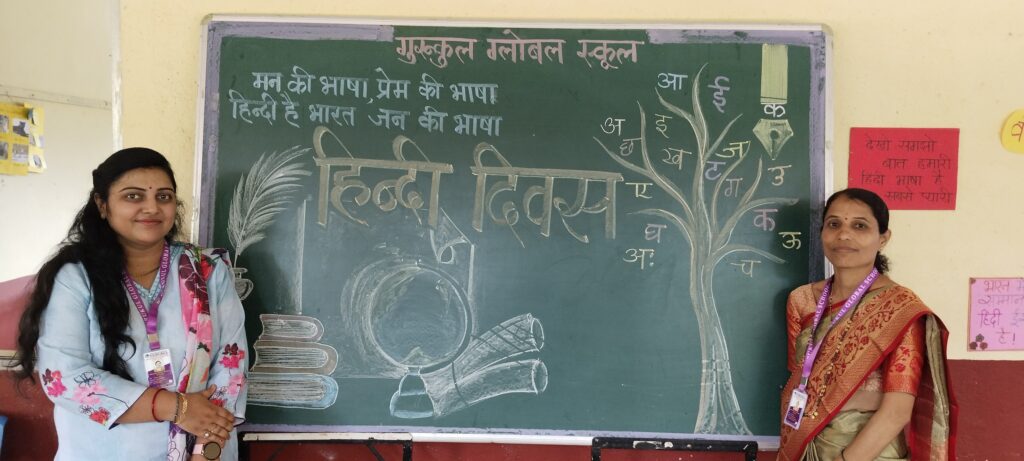 गुरुकुल ग्लोबल स्कूल
मन की भाषा, प्रेम की भाषा
हिन्दी है भारत जन की भाषा
हिन्दी दिवस
आ
ई
क
अ
इ
छ
ख
ज
ट
ग
उ
ए
क
घ
ऊ
अः
च
देखो समझो
बात हमारी
हिंदी भाषा है
सबसे प्यारी
भारत
हिंदी
है!